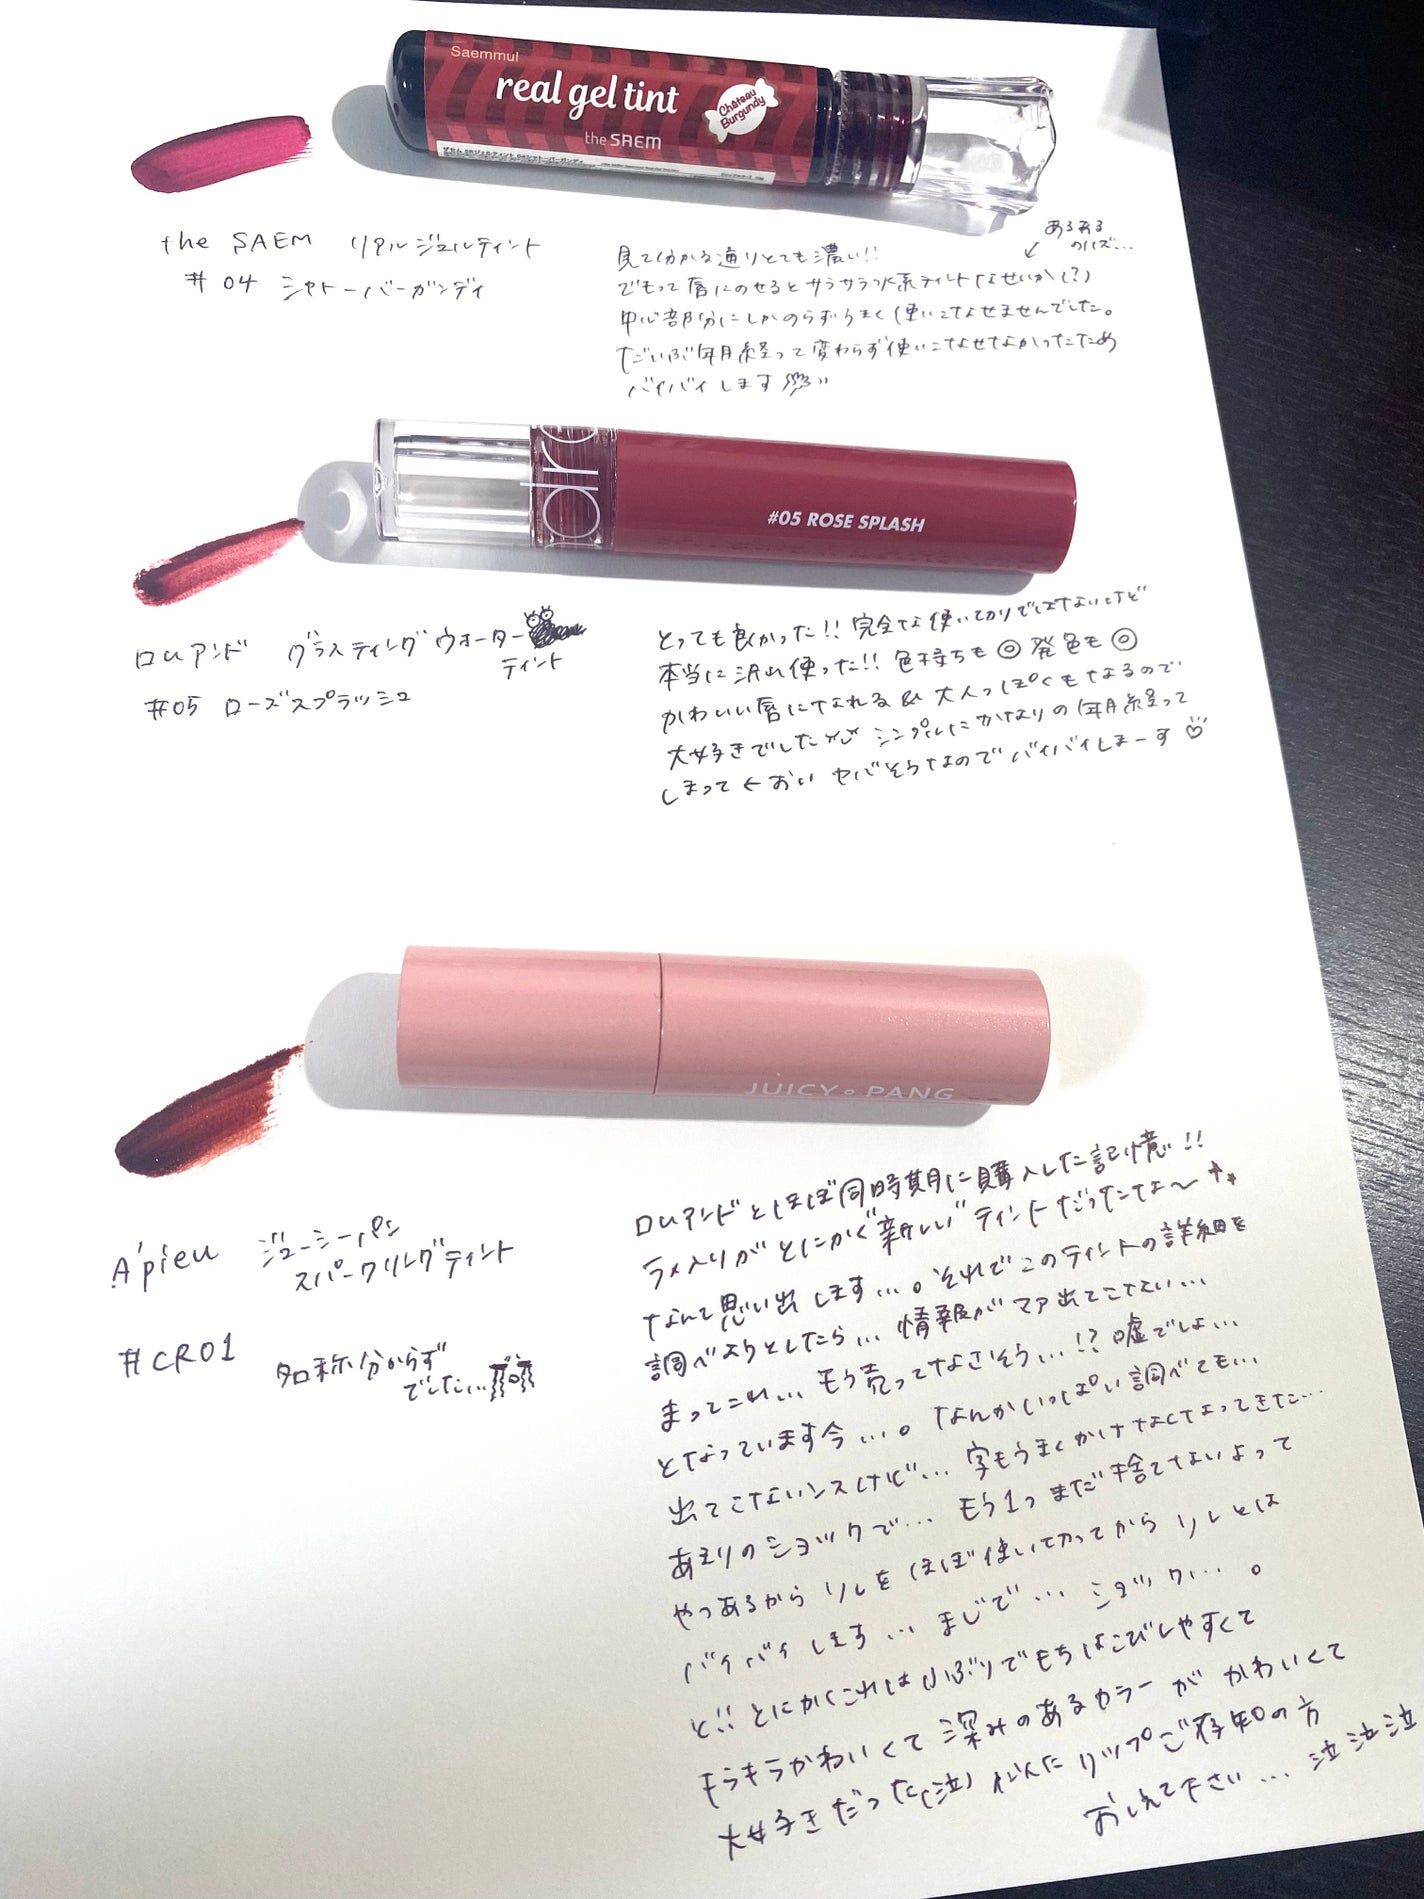 Saemmul
real gel tint
Château
Burgundy
the SAEM
the SAEM リアルジェルティント
#04 シャトーバーガンディ
あるある
クイズ...
見て分かる通りとても濃い!!
でもって唇にのせるとサラサラ水系ティントなせいか(?)
中心部分にしかのらずうまく使いこなせませんでした。
だいぶ年月経って変わらず使いこなせなかったため
バイバイします
#05 ROSE SPLASH
ロムアンド グラスティングウォーター
ティント
#05 ローズスプラッシュ
とっても良かった!! 完全な使い切りではないけど
本当に沢山使った!! 色持ちも◎発色も◎
かわいい唇になれる& 大人っぽくもなるので
大好きでした シンプルにかなりの年月経って
しまって←おい ヤバそうなのでバイバイしまーす♡
JUICY PANG
A'pieu ジューシーパン
スパークリングティント
#CR01 名称分からず
でした...
ロムアンドとほぼ同時期に購入した記憶!!
ラメ入りがとにかく"新しい"ティントだったな〜
なんて思い出します...。それでこのティントの詳細を
調べようとしたら... 情報がマァ出てこない...
まってこれ... もう売ってなさそう...!? 嘘でしょ...
となっています今...。なんかいっぱい調べても...
出てこないンスけど... 字もうまくかけなくなってきた...
あまりのショックで... もう1つまだ捨てないよって
やつあるから りしを ほぼ使い切ってから りしとは
バイバイします... まじで... ショック...。
と!! とにかくこれは小ぶりでもちはこびしやすくて
キラキラかわいくて深みのあるカラーがかわいくて
大好きだった(泣) 似たリップご存知の方
おしえて下さい... 泣泣泣